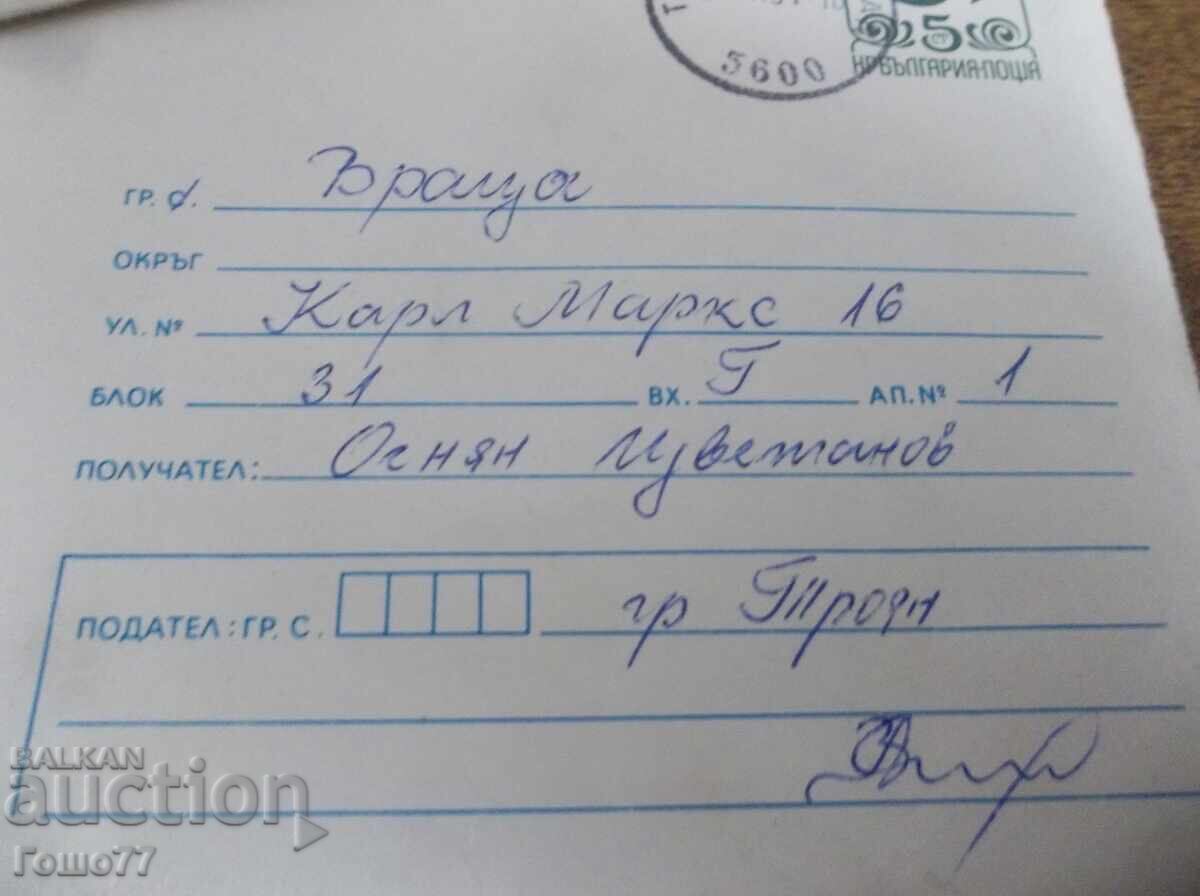 5
5600
НР БЪЛГАРИЯ·ПОЩА
ГР. С. Враца
ОКРЪГ
УЛ. № Карл Маркс 16
БЛОК 31 ВХ. Г АП. № 1
ПОЛУЧАТЕЛ: Огнян Цветанов
ПОДАТЕЛ: ГР. С. гр Троян
BALKAN
auction
Гошо77